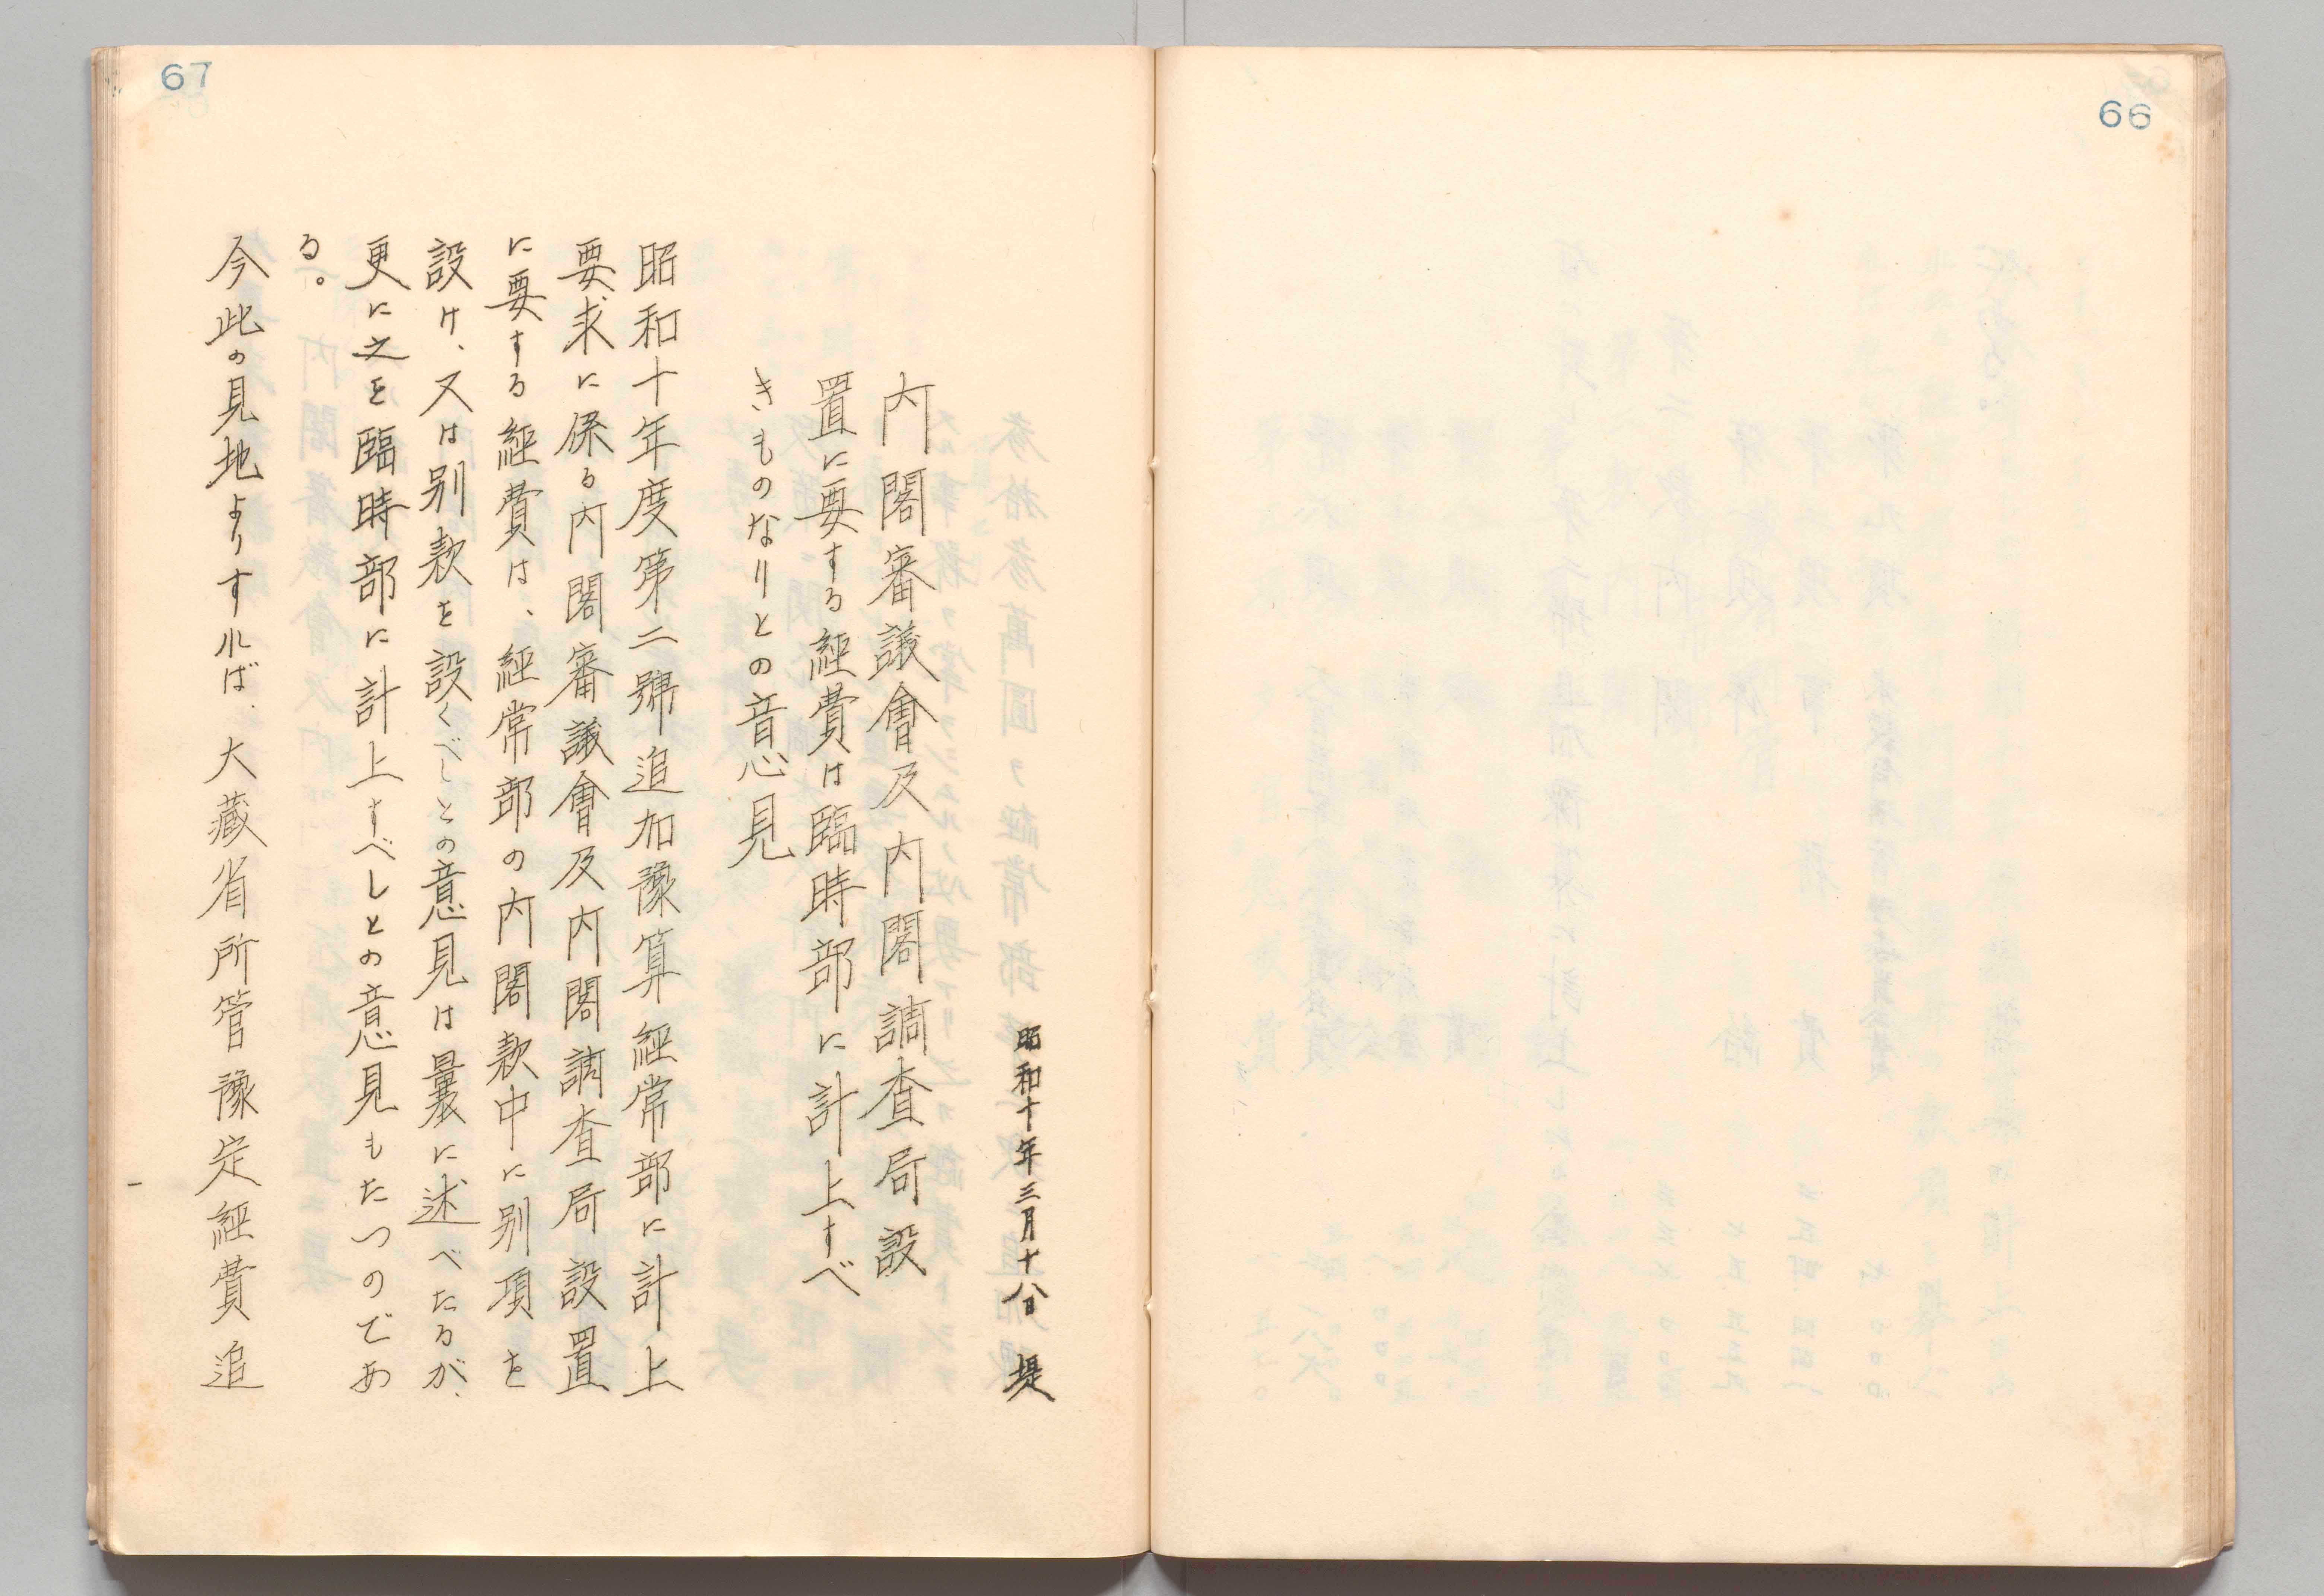 66
67
昭和十年三月十八日 堤
内閣審議會及内閣調査局設
置に要する經費は臨時部に計上すべ
きものなりとの意見
昭和十年度第二號追加豫算經常部に計上
要求に係る内閣審議會及内閣調査局設置
に要する經費は、經常部の内閣款中に別項を
設け、又は別款を設くべしとの意見は曩に述べたるが、
更に之を臨時部に計上すべしとの意見もたつのであ
る。
今此の見地よりすれば、大藏省所管豫定經費追